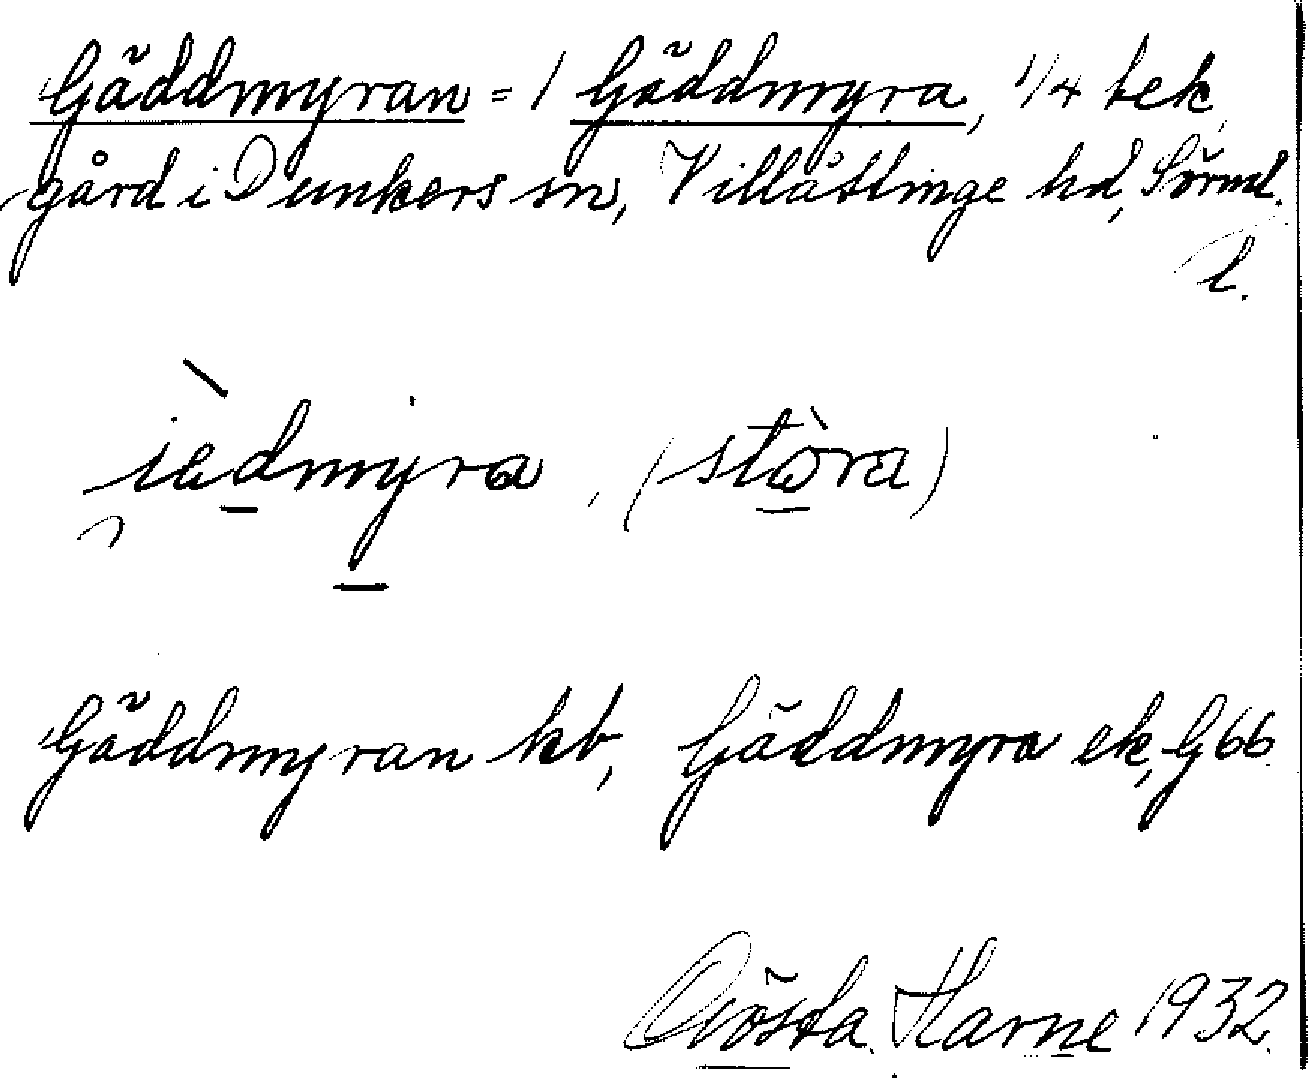 Gäddmyran = 1 Gäddmyra, 1/4 bek.
gård i Dunkers sn, Villåttinge hd, Sörml.
l.
jèdmyra, (stòra)
Gäddmyran kb, Gäddmyra ek, G66.
Gösta Harne 1932.